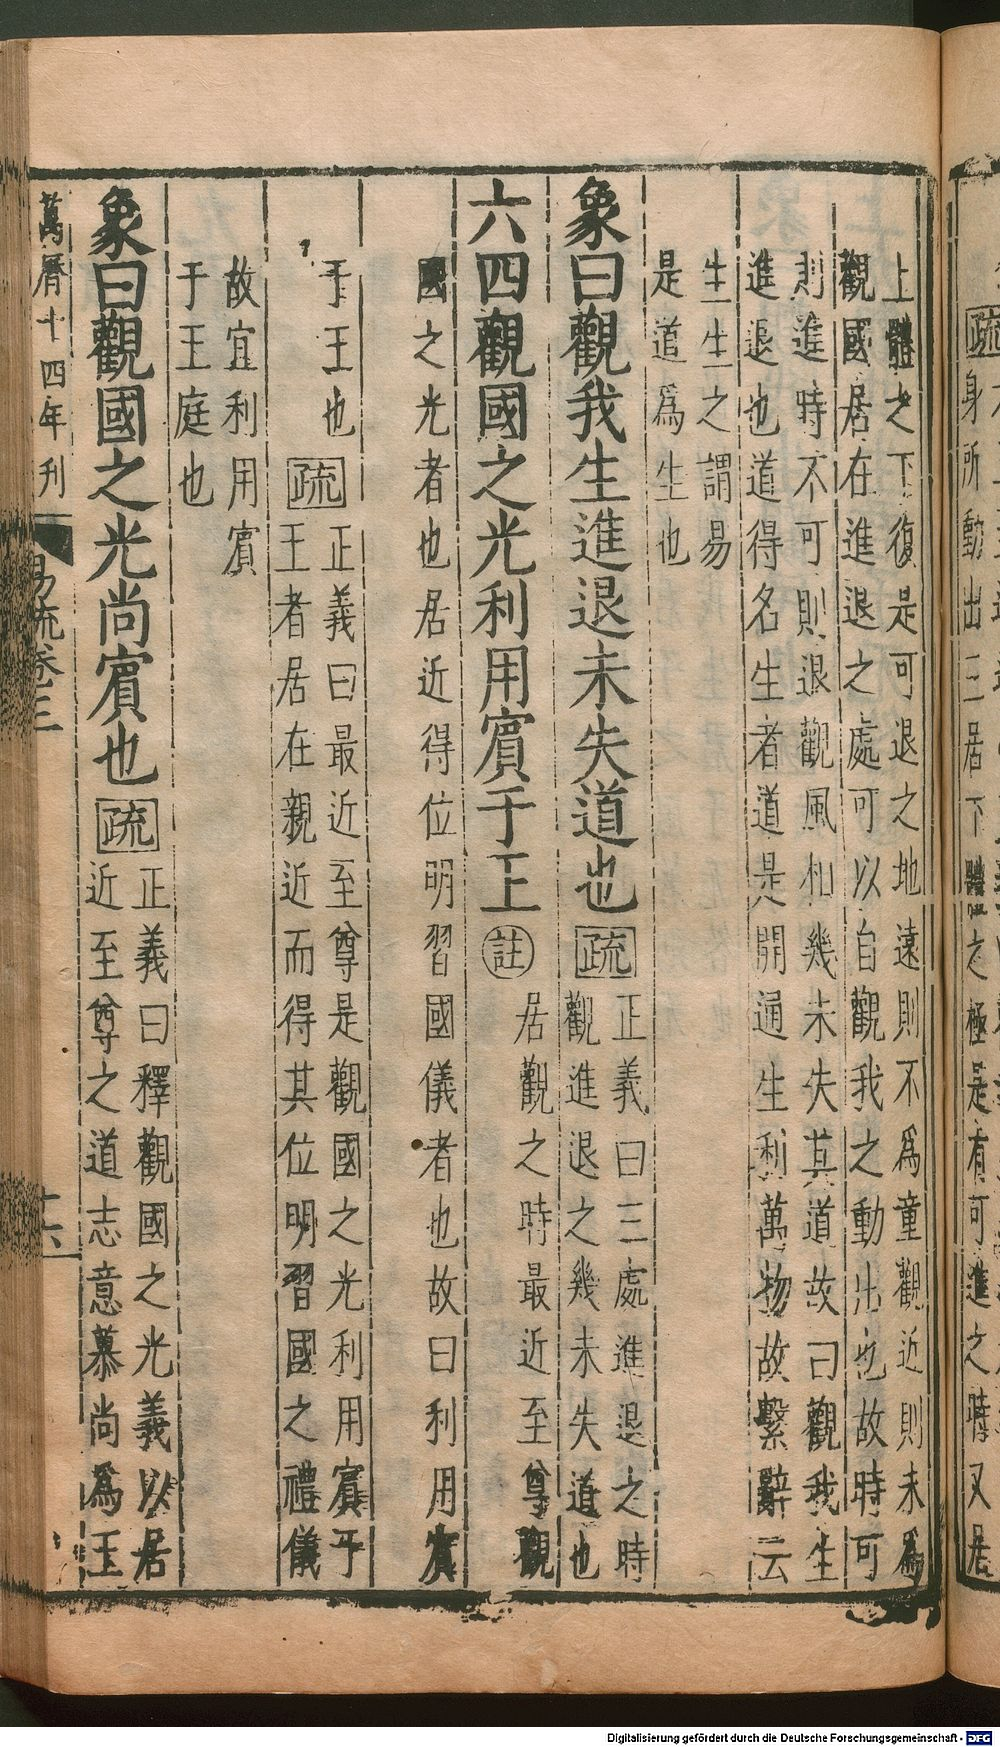 上體之下復是可退之地遠則不爲童觀近則未爲
觀國居在進退之處可以自觀我之動出也故時可
則進時不可則退觀風相幾未失其道故曰觀我生
進退也道得名生者道是開通生利萬物故繫辭云
生生之謂易
是道爲生也
象曰觀我生進退未失道也疏
正義曰三處進退之時
觀進退之幾未失道也
六四觀國之光利用賓于王註
居觀之時最近至尊觀
國之光者也居近得位明習國儀者也故曰利用賓
于王也疏
正義曰最近至尊是觀國之光利用賓于
王者居在親近而得其位明習國之禮儀
故宜利用賓
于王庭也
象曰觀國之光尚賓也疏
正義曰釋觀國之光義以居
近至尊之道志意慕尚爲王
萬曆十四年刋 易疏卷三 十六
疏
身所動出三居下體之極是有可進之時又居
Digitalisierung gefördert durch die Deutsche Forschungsgemeinschaft - DFG